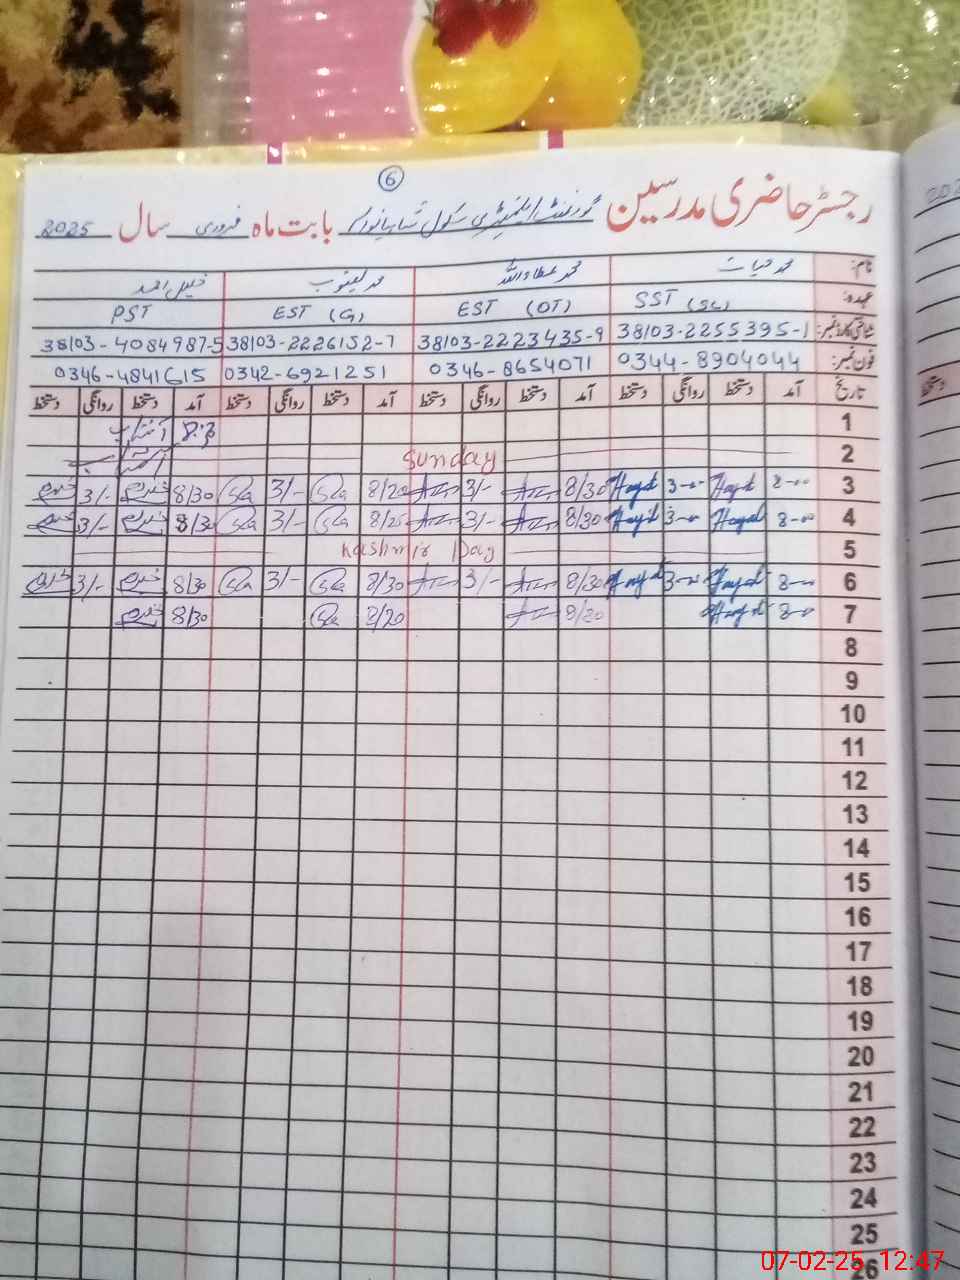 6
رجسٹر حاضری مدرسین گورنمنٹ ایلیمنٹری سکول بابت ماہ فروری سال 2025
نام: محمد حیات محمد عطاء اللہ محمد یعقوب خلیل احمد
عہدہ: SST (Sc) EST (OT) EST (G) PST
شناختی کارڈ نمبر: 38103-2255395-1 38103-2223435-9 38103-2226152-7 38103-4084987-5
فون نمبر: 0344-8904044 0346-8654071 0342-6921251 0346-4841615
تاریخ آمد دستخط روانگی دستخط آمد دستخط روانگی دستخط آمد دستخط روانگی دستخط آمد دستخط روانگی دستخط
1
2 Sunday
3 8-00 Hayat 3-00 Hayat 8/30 3/- 8/20 3/- 8/30 3/-
4 8-00 Hayat 3-00 Hayat 8/30 3/- 8/25 3/- 8/30 3/-
5 Kashmir Day
6 8-00 Hayat 3-00 Hayat 8/30 3/- 8/30 3/- 8/30 3/-
7 8-00 Hayat 8/30 8/20 8/30
8
9
10
11
12
13
14
15
16
17
18
19
20
21
22
23
24
25
26
07-02-25 12:47